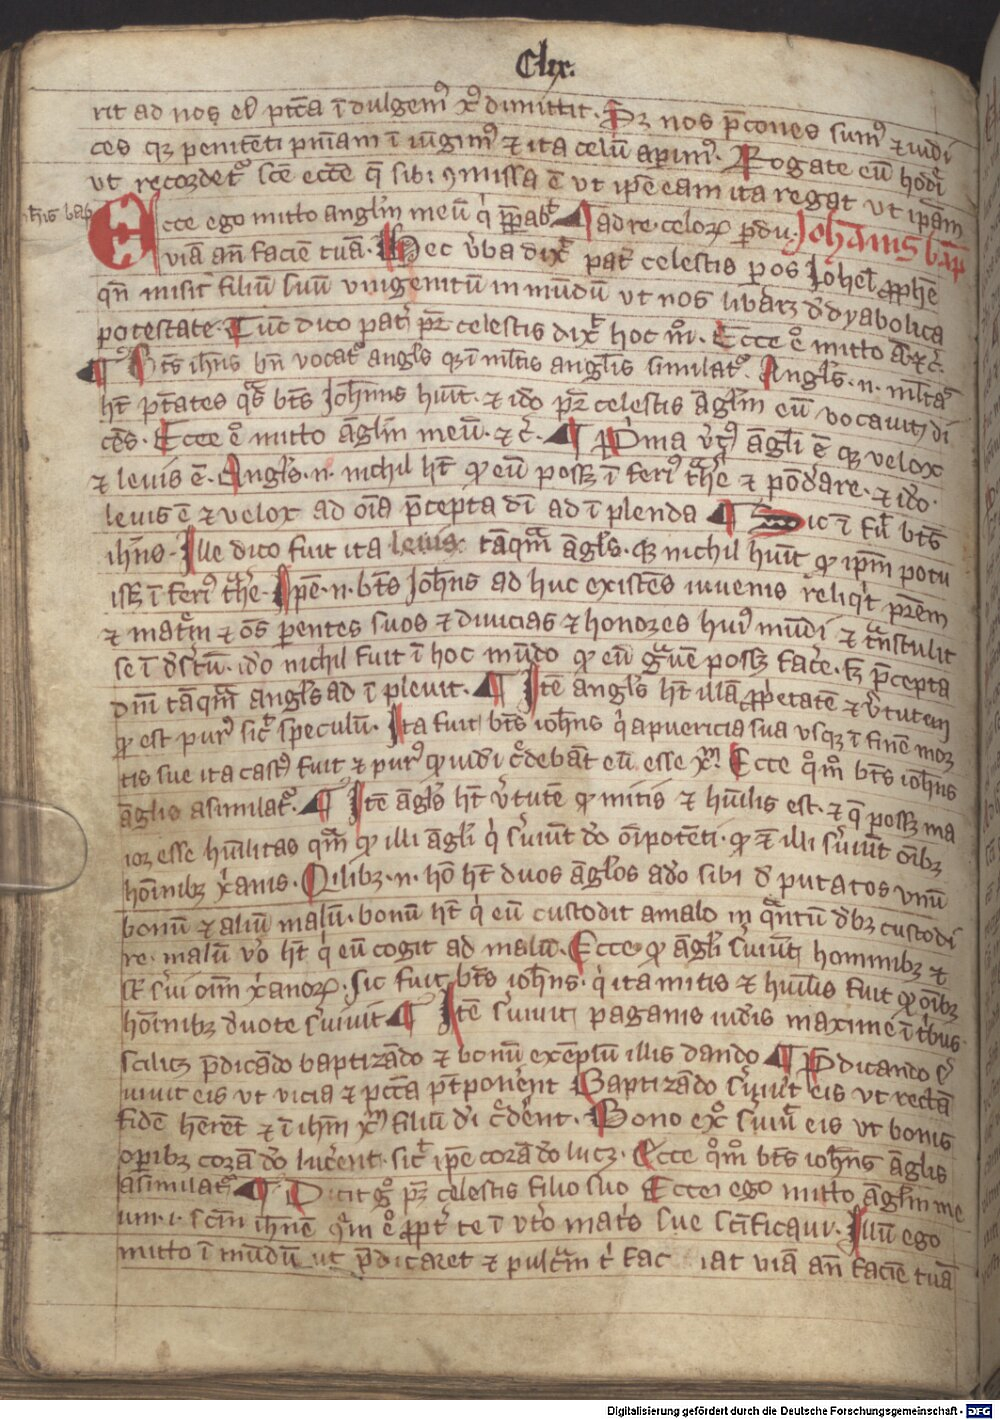 Clix.
rit ad nos et pctā īdulgem⁹ xp̄ dimittit. Sz nos p̄cones sum⁹ ⁊ iudi
ces qz penitēti pnīam ī iūgim⁹ ⁊ ita celū aperim⁹. Rogate eū hodie
ut recordet̄ scē eccē q̄ sibi ꝯmissa ē ut ip̄e eam ita regat ut ipām
Ecce ego mitto anglm̄ meū q̇ p̄pabt
adre celoꝝ
Joh̄anīs bap̄
uiā an̄ faciē tuā. Hec v̄ba dix̄ pat̄ celestis p os Johel p̄phē
qn̄ misit filiū suū unigenitū in mūdū ut nos lib̄aꝫ d̄ dyabolica
potestate. Tūc dico pat̄ pr̄ celestis dix̄ hoc mō. Ecce eo mitto ⁊c̄.
bt̄s ihn̄s bn̄ vocat⁹ angl̄s qz ī ml̄tis angl̄is similat⁹. Angl̄s .n. ml̄tas
ht̄ pt̄ates qs̄ bt̄s Joh̄nns hūit. ⁊ iđo pr̄ celestis āglm̄ eū vocauit di
cēs. Ecce eo mitto āglm̄ meū. ⁊c̄. ¶ Pima v̄t⁹ āgli ē qz velox
⁊ leuis ē. Angl̄s .n. nichil ht̄ qđ eū possꝫ ī feri⁹ th̄e ⁊ pōđare. ⁊ iđo
leuis ē ⁊ velox ad oīa p̄cepta dī ad īplenda ¶ Sic ī fuit bt̄s
ihn̄s. Ille dico fuit ita leuis tāqm̄ āgl̄s. qz nichil hūit qđ ipm̄ potu
issꝫ ī feri⁹ th̄e. Ipē .n. bt̄s Joh̄ns ad huc existēs iuuenis reliq̇t pr̄em
⁊ matr̄m ⁊ oēs parentes suos ⁊ diuicias ⁊ honores hui⁹ mūdi ⁊ tn̄stulit
se ī d̄s̄tū. iđo nichil fuit ī hoc mūdo qđ eū gū̄e possꝫ face. sꝫ p̄cepta
dm̄ tāqm̄ angl̄s ad īpleuit. ¶ Itē angl̄s ht̄ illā p̄p̄etatē ⁊ v̄tutem
qđ est pur⁹ sic̄ speculū. Ita fuit bt̄s ioh̄ns q̇ a puericia sua usqꝫ ī finē mor
tis sue ita cast⁹ fuit ⁊ pur⁹ qđ iuđi c̄debāt eū esse xp̄m. Ecce qm̄o bt̄s ioh̄ns
āglis asimilat⁹. ¶ Itē āgl̄s ht̄ v̄tutē qđ mitis ⁊ hūilis est. ⁊ q̄ possꝫ ma
ior esse hūilitas qm̄ qđ illi āgli q̇ s̄uiūt đo oīpotēti. qđ ēt illi s̄uiūt oībꝫ
hoīnibꝫ x̄anis. Qilibꝫ .n. ho ht̄ duos āgl̄os a đo sibi d̄putatos vnū
bonū ⁊ aliū malū. bonū ht̄ q̇ eū custodit a malo in qn̄tū đbꝫ custodi
re. malū vo ht̄ q̇ eū cogit ad malū. Ecce qđ āgli s̄uiūt hominibꝫ ⁊
st̄ s̄ui oīm x̄anoꝝ. Sic fuit bt̄s ioh̄ns. q̇ ita mitis ⁊ hūilis fuit qđ oībꝫ
hoīnibꝫ đuote s̄uiuit ¶ Itē s̄uiuit paganis iuđis maxime ī tbus
scilicꝫ p̄dicādo baptizādo ⁊ bonū exēplū illis dando ¶ Pdicando s̄
uiuit eis ut vicia ⁊ pctā pt̄ponēnt Baptizādo s̄uiuit eis ut rectā
fidē hēent ⁊ ī ihm̄ xp̄m filiū đi c̄dēnt. Bono exo s̄uiuit eis ut bonis
oꝑibꝫ corā đo lucēnt. sic̄ ipē corā đo lucꝫ. Ecce qm̄o bt̄s ioh̄ns āglis
asimilat⁹ ¶ Dicit g⁰ pr̄ celestis filio suo Ecce ego mitto āglm̄ me
um .i. scm̄ ihn̄ē qm̄ eo p̄pt̄ te ī vt̄o mat̄s sue sc̄ificaui. Illū ego
mitto ī mūdū ut p̄dicaret ⁊ pulcr̄m t̄ faciat uiā an̄ faciē tuā
Digitalisierung gefördert durch die Deutsche Forschungsgemeinschaft - DFG